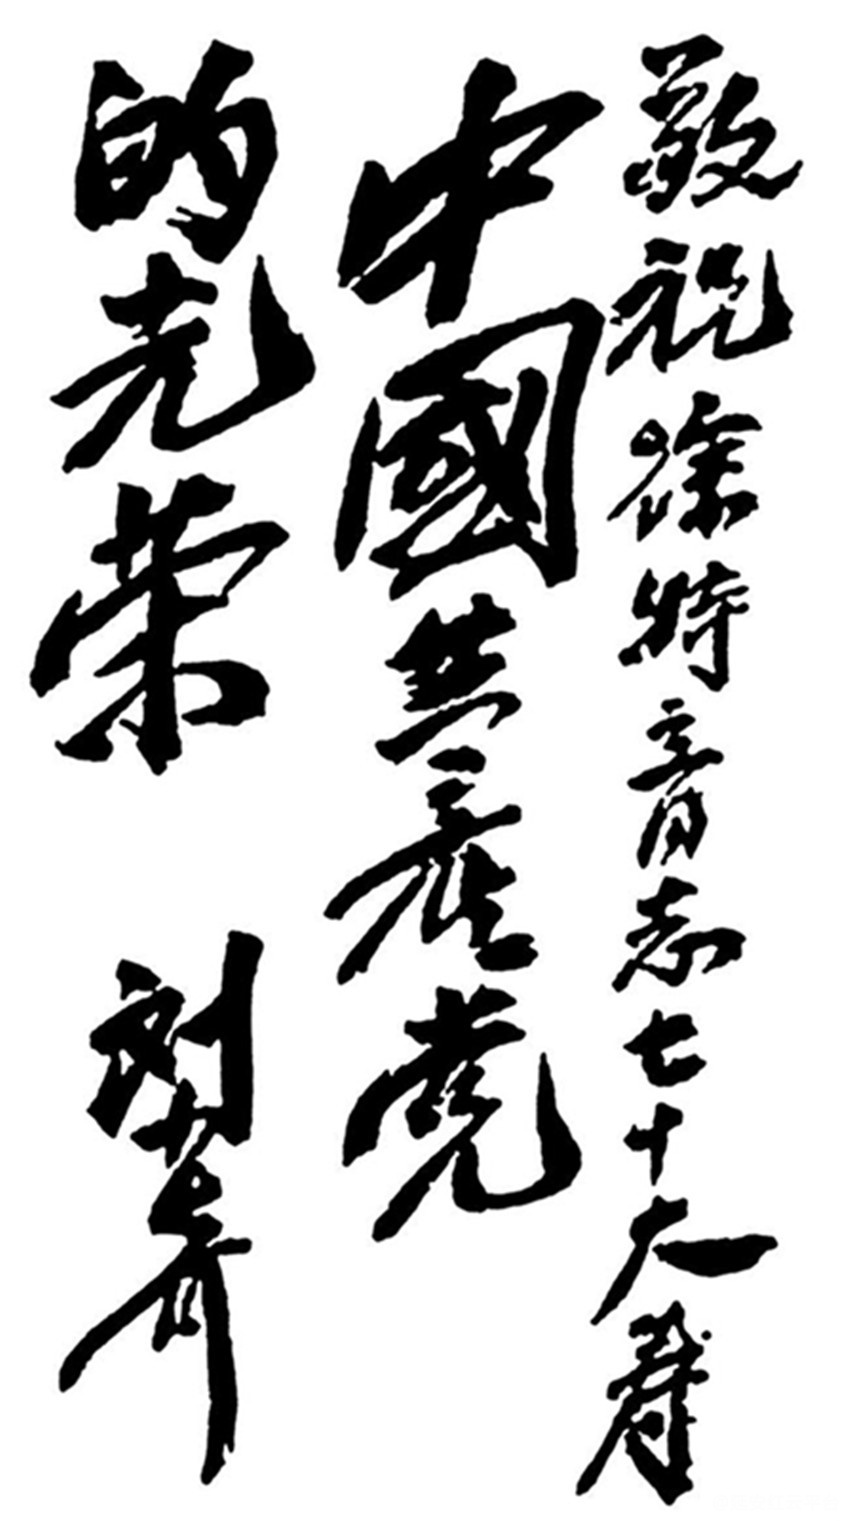 敬祝徐特立同志七十大寿
中國共产党
的光荣
刘少奇